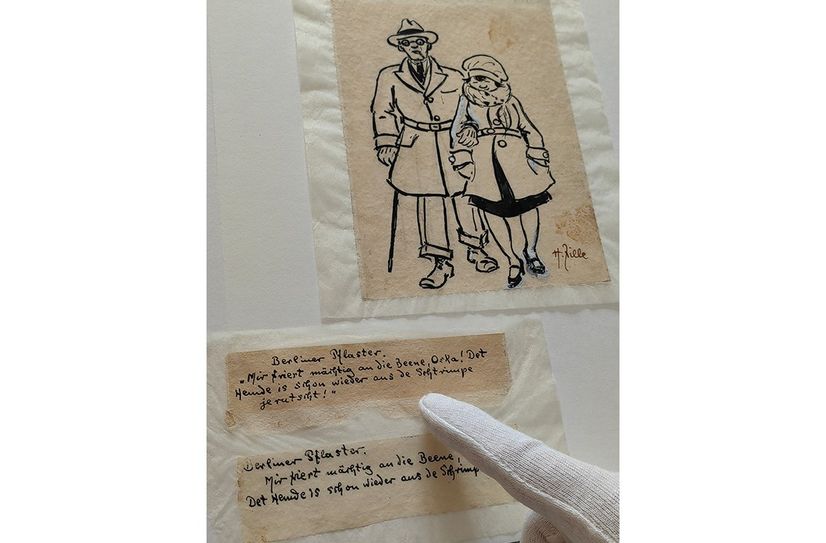 H. Zille
Berliner Pflaster.
"Mir friert mächtig an die Beene, Orka! Det
Hemde is schon wieder aus de Schtrimpe
jerutscht!"
Berliner Pflaster.
Mir friert mächtig an die Beene,
Det Hemde is schon wieder aus de Schtrimp